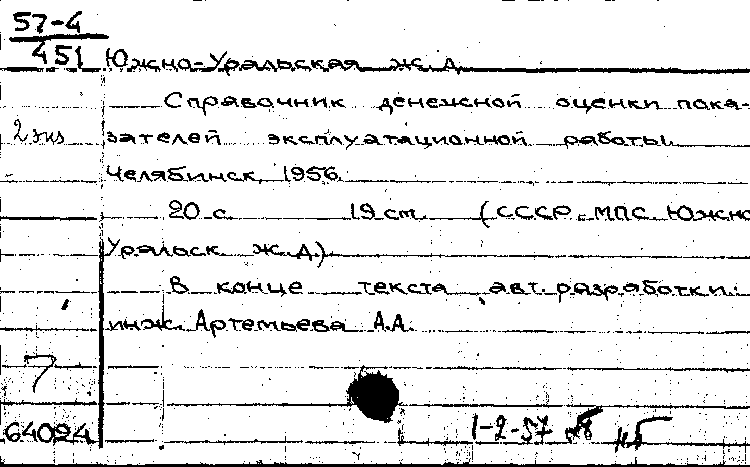 57-4
451 Южно-Уральская ж.д.
Справочник денежной оценки пока-
2 экз зателей эксплуатационной работы.
Челябинск, 1956.
20 с. 19 см. (СССР. МПС. Южно
Уральск ж.д.).
В конце текста авт. разработки:
инж. Артемьева А.А.
7
64024 1-2-57